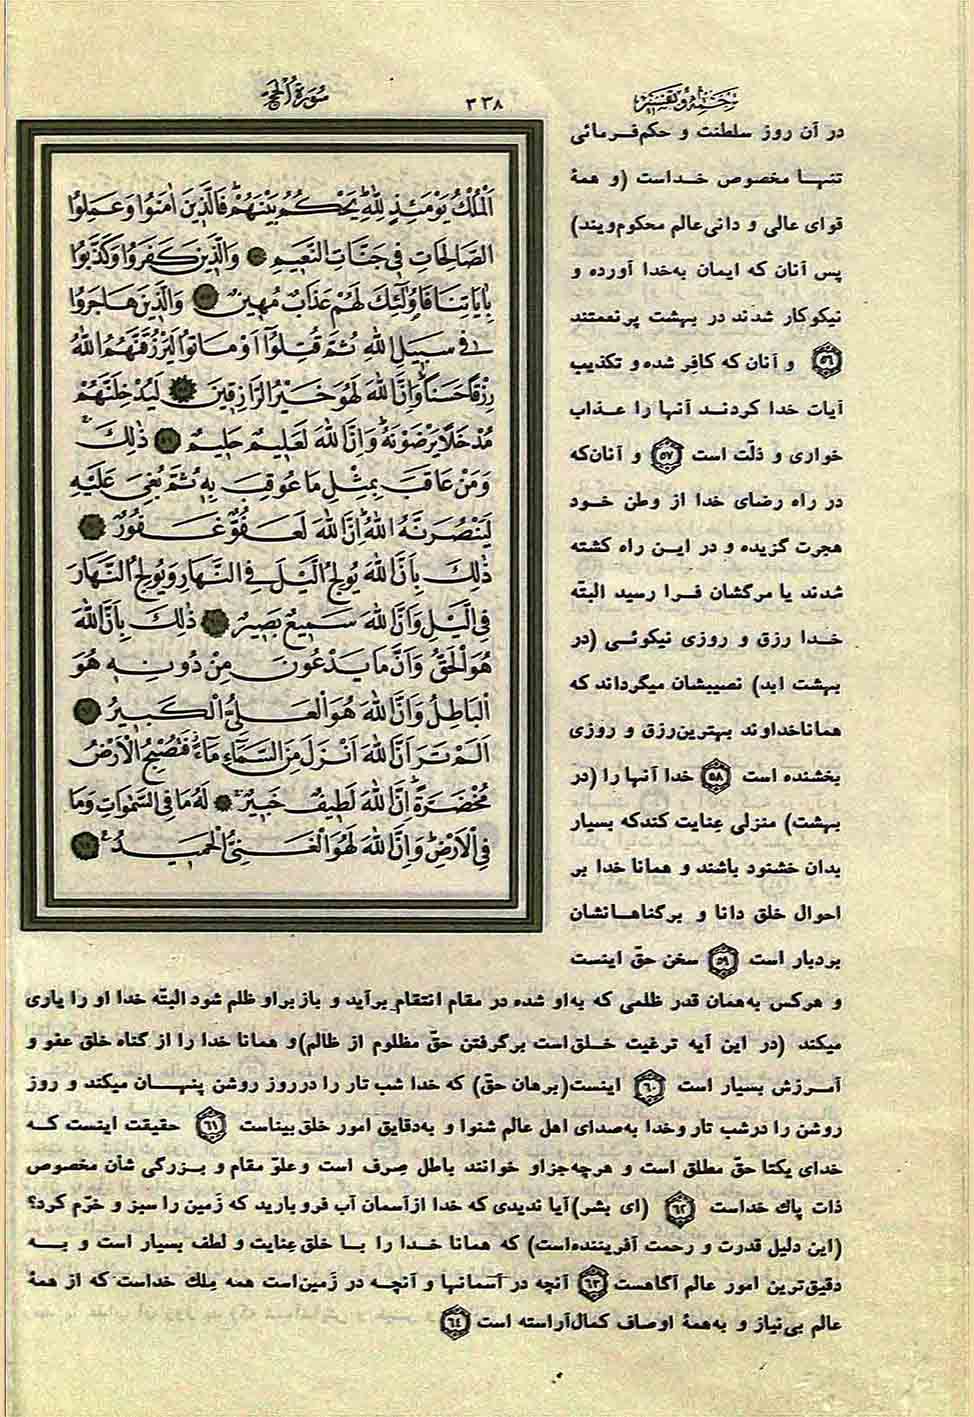 ترجمه و تفسیر
۳۳۸
سُورَةُ الْحَجّ
اَلْمُلْكُ يَوْمَئِذٍ لِلّٰهِ يَحْكُمُ بَيْنَهُمْ فَالَّذينَ اٰمَنُوا وَعَمِلُوا
الصَّالِحَاتِ فى جَنَّاتِ النَّعيمِ وَالَّذينَ كَفَرُوا وَكَذَّبُوا
بِاٰيَاتِنَا فَاُولٰئِكَ لَهُمْ عَذَابٌ مُهينٌ وَالَّذينَ هَاجَرُوا
فى سَبيلِ اللهِ ثُمَّ قُتِلُوا اَوْ مَاتُوا لَيَرْزُقَنَّهُمُ اللهُ
رِزْقًا حَسَنًا وَاِنَّ اللهَ لَهُوَ خَيْرُ الرَّازِقينَ لَيُدْخِلَنَّهُمْ
مُدْخَلًا يَرْضَوْنَهُ وَاِنَّ اللهَ لَعَليمٌ حَليمٌ ذٰلِكَ
وَمَنْ عَاقَبَ بِمِثْلِ مَا عُوقِبَ بِهِ ثُمَّ بُغِىَ عَلَيْهِ
لَيَنْصُرَنَّهُ اللهُ اِنَّ اللهَ لَعَفُوٌّ غَفُورٌ
ذٰلِكَ بِاَنَّ اللهَ يُولِجُ الَّيْلَ فِى النَّهَارِ وَيُولِجُ النَّهَارَ
فِى الَّيْلِ وَاَنَّ اللهَ سَميعٌ بَصيرٌ ذٰلِكَ بِاَنَّ اللهَ
هُوَ الْحَقُّ وَاَنَّ مَا يَدْعُونَ مِنْ دُونِهِ هُوَ
الْبَاطِلُ وَاَنَّ اللهَ هُوَ الْعَلِىُّ الْكَبيرُ
اَلَمْ تَرَ اَنَّ اللهَ اَنْزَلَ مِنَ السَّمَاءِ مَاءً فَتُصْبِحُ الْاَرْضُ
مُخْضَرَّةً اِنَّ اللهَ لَطيفٌ خَبيرٌ لَهُ مَا فِى السَّمٰوَاتِ وَمَا
فِى الْاَرْضِ وَاِنَّ اللهَ لَهُوَ الْغَنِىُّ الْحَميدُ
در آن روز سلطنت و حکم‌فرمائی
تنها مخصوص خداست (و همهٔ
قوای عالی و دانی عالم محکوم ویند)
پس آنان که ایمان به‌خدا آورده و
نیکوکار شدند در بهشت پرنعمتند
۵۶ و آنان که کافِر شده و تکذیب
آیات خدا کردند آنها را عذاب
خواری و ذلّت است ۵۷ و آنان‌که
در راه رضای خدا از وطن خود
هجرت گزیده و در این راه کشته
شدند یا مرگشان فرا رسید البتّه
خدا رزق و روزی نیکوئی (در
بهشت ابد) نصیبشان میگرداند که
همانا خداوند بهترین رزق و روزی
بخشنده است ۵۸ خدا آنها را (در
بهشت) منزلی عِنایت کند که بسیار
بدان خشنود باشند و همانا خدا بر
احوال خلق دانا و بر گناهانشان
بردبار است ۵۹ سخن حقّ اینست
و هرکس به‌همان قدر ظلمی که به‌او شده در مقام انتقام برآید و باز براو ظلم شود البتّه خدا او را یاری
میکند (در این آیه ترغیت خلق است برگرفتن حقّ مظلوم از ظالم) و همانا خدا را از گناه خلق عفو و
آمرزش بسیار است ۶۰ اینست (برهان حقّ) که خدا شب تار را در روز روشن پنهان میکند و روز
روشن را در شب تار و خدا به‌صدای اهل عالم شنوا و به‌دقایق امور خلق بیناست ۶۱ حقیقت اینست که
خدای یکتا حقّ مطلق است و هرچه جز او خوانند باطل صِرف است و علوّ مقام و بزرگی شأن مخصوص
ذات پاك خداست ۶۲ (ای بشر) آیا ندیدی که خدا از آسمان آب فرو بارید که زَمین را سبز و خرّم کرد؟
(این دلیل قدرت و رحمت آفریننده است) که همانا خدا را با خلق عِنایت و لطف بسیار است و به
دقیق‌ترین امور عالم آگاهست ۶۳ آنچه در آسمانها و آنچه در زَمین است همه مِلك خداست که از همهٔ
عالم بی‌نیاز و به‌همهٔ اوصاف کمال آراسته است ۶۴